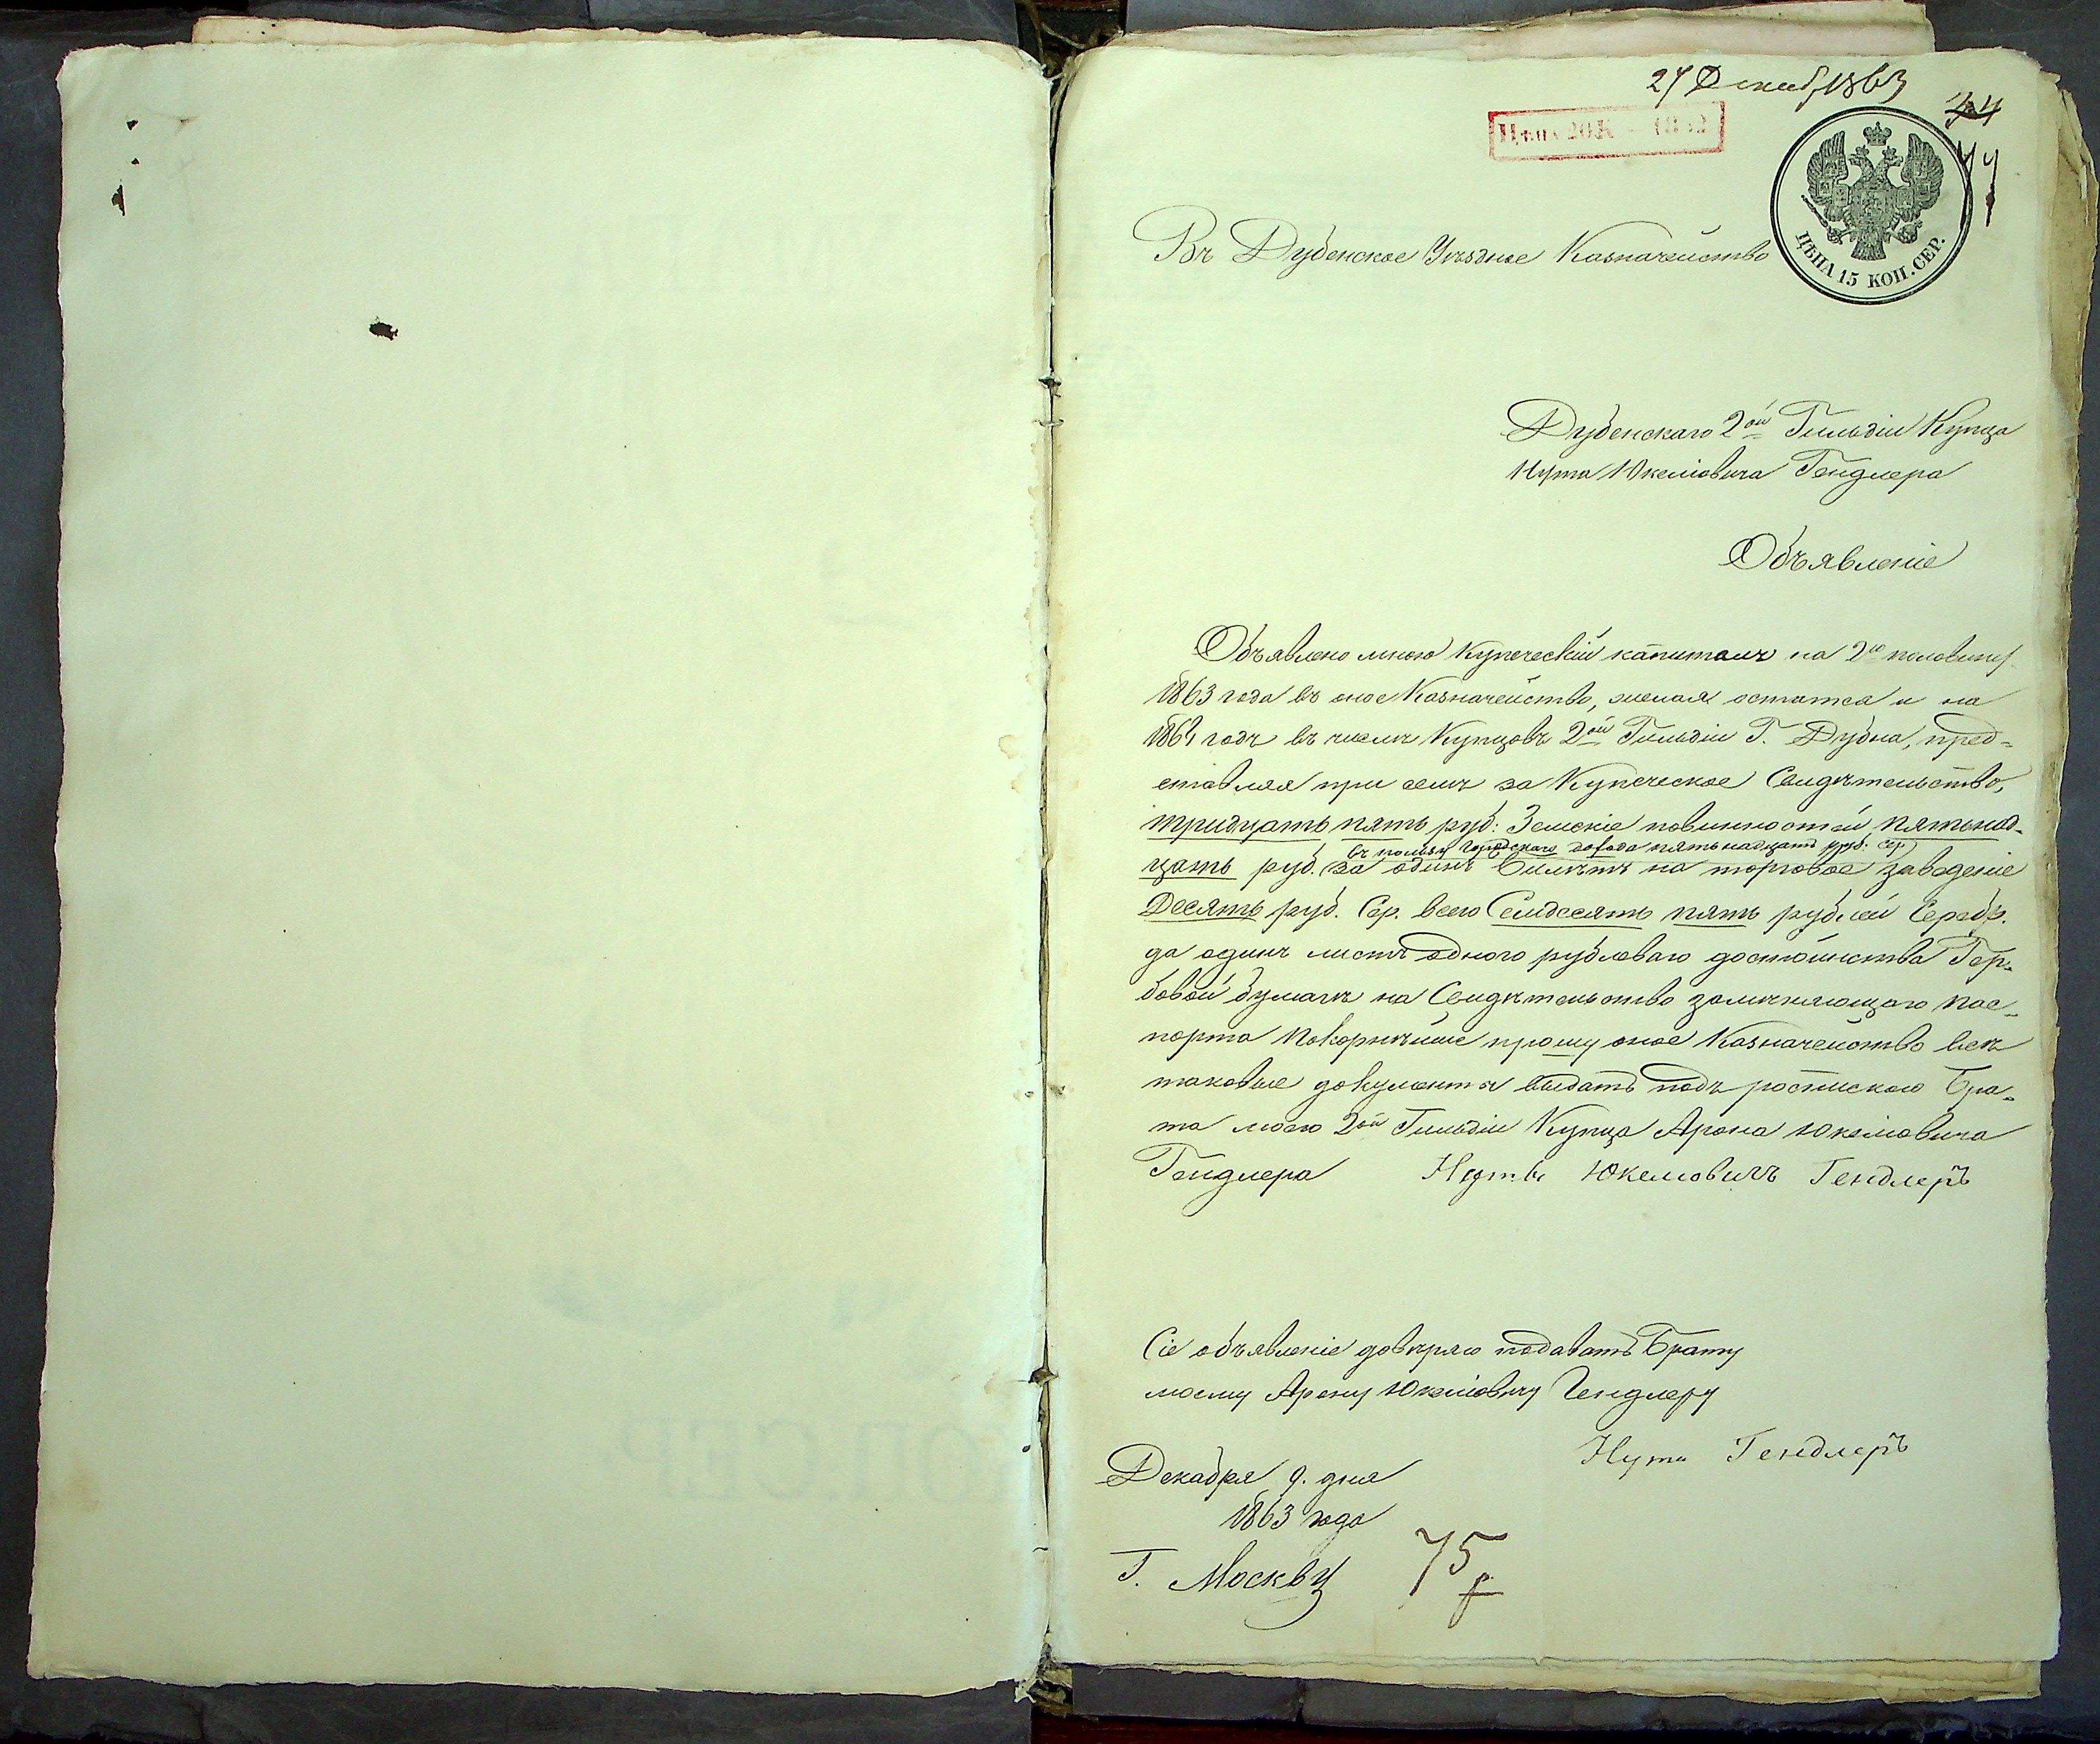 27 Декаб. 1863
44
Цена 20 К
ЦѢНА 15 КОП. СЕР.
Въ Дубенское Уѣздное Казначейство
Дубенскаго 2ой Гильдіи Купца
Нута Юкеліовича Гендлера
Объявленіе
Объявлено мною купеческій капиталъ на 2ю половину
1863 года въ оное Казначейство, желая остатса и на
1864 годъ въ числѣ Купцовъ 2ой Гильдіи Г. Дубна, пред-
ставляя при семъ за Купеческое Свидѣтельство,
тридцать пять руб: Земскіе повинностей пятьнад-
въ пользу Городскаго дохода пятьнадцать руб: сер
цать руб. за одинъ билѣтъ на торговое заведеніе
Десять руб. Сер. всего Семдесять пять рублей Серебр.
да одинъ листъ одного рублеваго достоинства Гер-
бовой бумагѣ на Свидѣтельство замѣняющаго пас-
порта покорнѣйше прошу оное Казначейство всѣ
таковые документы выдать подъ роспискою Бра-
та моего 2ой Гильдіи Купца Арона Юкеліовича
Гендлера Нутъ Юкелиовичъ Гендлеръ
Сіе объявленіе довѣряю подавать Брату
моему Арону Юкеліовичу Гендлеру
Нута Гендлеръ
Декабря 9. дня
1863 года
Г. Москвы
75 р